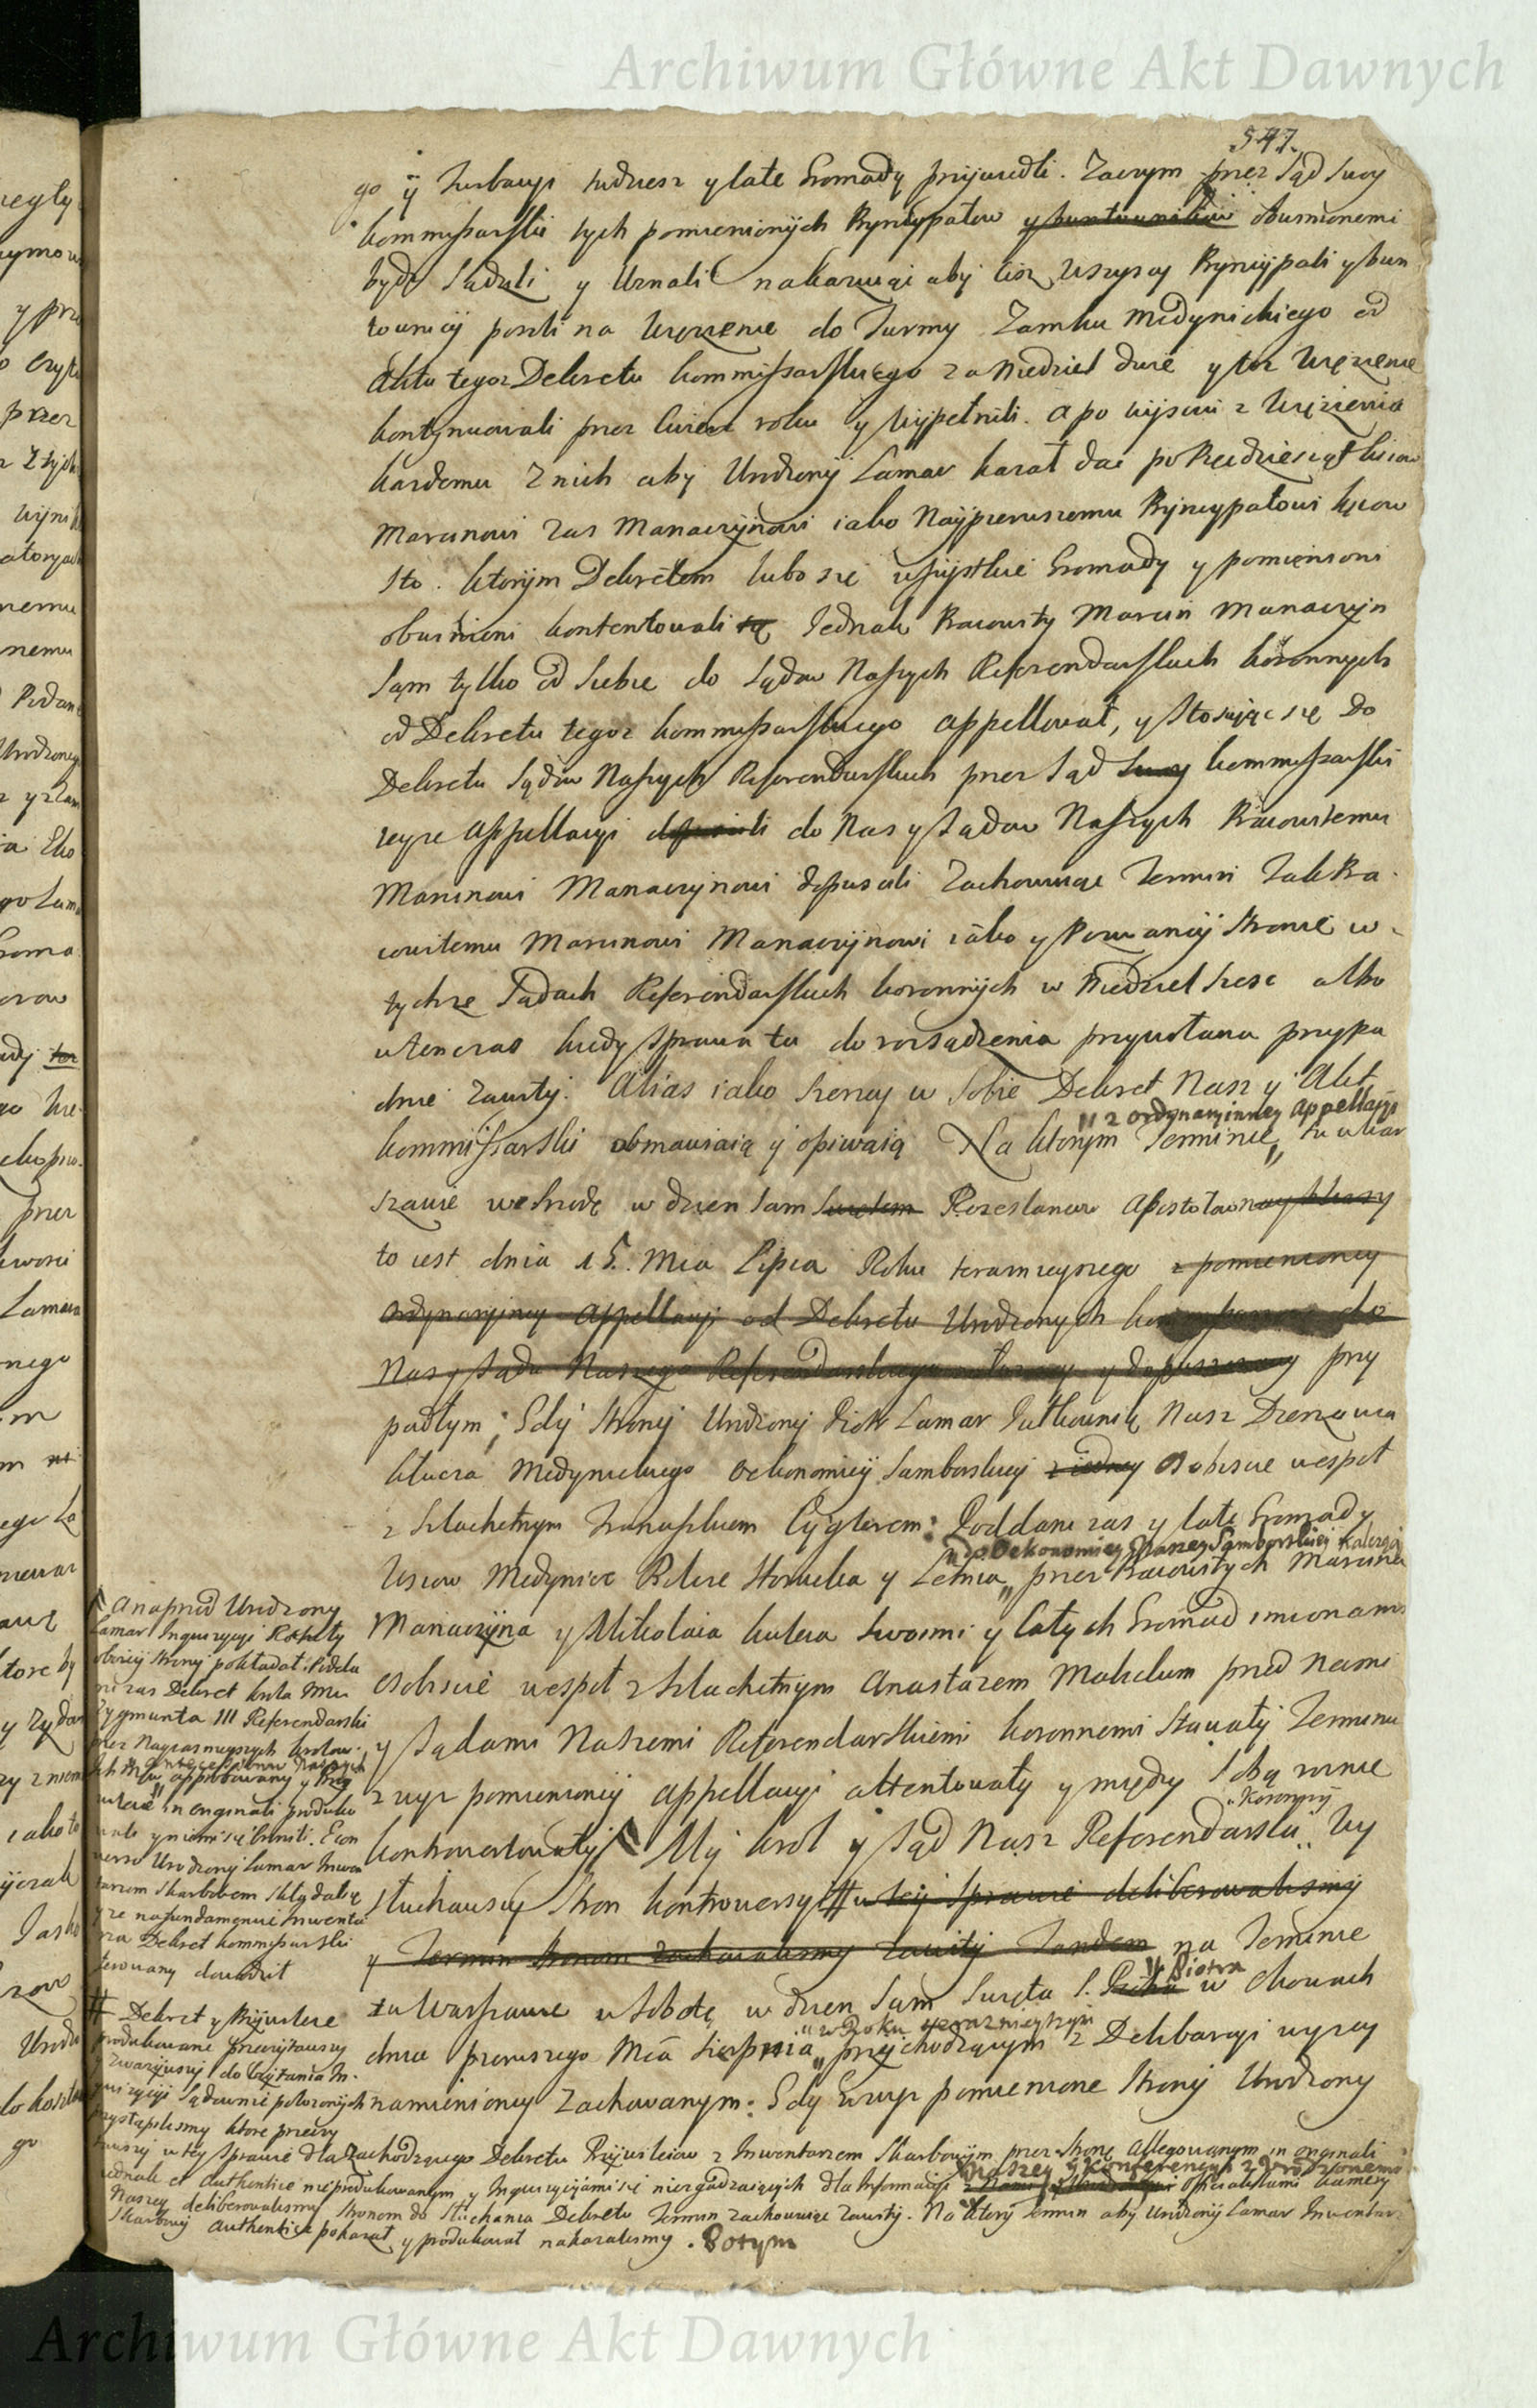 Archiwum Główne Akt Dawnych
547.
go y Turbacyi tudziesz y całe Gromady przywiedli. Zaczym przez Sąd swoy
kommissarski tych pomienionych Pryncypałow y buntownikow obwinionemi
bydz sądzili y Uznali nakazuiąc aby ciż wszyscy Pryncypali y bun
townicy poszli na więzienie do Turmy Zamku Medynickiego od
Aktu tegoz Dekretu kommissarskiego za Niedziel dwie y toz więzienie
kontynuowali przez cwierc roku y wypełnili. a po wyisciu z więzienia
kazdemu z nich aby Urodzony Lamar kazał dac po Pięcdziesiąt
Marcinowi zas Manaczynowi iako Naypierwszemu Pryncypałowi
sto. ktorym Dekretem lubo się wszystkie Gromady y pomienioni
obwinieni kontentowali się Jednak Pracowity Marcin Manaczyn
sam tylko od siebie do Sądow Naszych Referendarskich koronnych
od Dekretu tegoz kommissarskiego appellował, y stosuiąc się do
Dekretu Sądow Naszych Referendarskich przez Sąd swoy kommissarski
teyze Appellacyi do Nas y Sądow Naszych Pracowitemu
Marcinowi Manaczynowi dopuscili Zachowuiąc Termin Tak Pra
cowitemu Marcinowi Manaczynowi iako y Pozwaney stronie w
tychze Sądach Referendarskich koronnych w Niedziel szesc albo
wtenczas kiedy sprawa ta do rozsądzenia przywołana przypa
dnie zawity. Alias iako szerzey w sobie Dekret Nasz y Akt
" z ordynaryiney Appellacyi
kommissarski obmawiaią y opiwaią Na ktorym Terminie, tu w War
szawie we Srodę w dzien sam swiętem Rozesłancow Apostołow
to iest dnia 15. Mca Lipca Roku teraznieyszego z pomienioney
ordynaryiney Appellacyi od Dekretu Urodzonych do
Nas y Sądu Naszego Referendarskiego y dopuszczoney przy
padłym; Gdy strony Urodzony Piotr Lamar Pułkownik Nasz Dzerzawca
klucza Medynickiego oekonomiey Samborskiey z iedney Osobiscie wespoł
z Szlachetnym Franciszkiem Cyglerem: Poddani zas y całe Gromady
do Oekonomiey Naszey Samborskiey
Wsiow Medynice Bilcze Horucka y Letnia przez Pracowitych Marcina
Manaczyna y Mikołaia swoimi y całych Gromad imionami
osobiscie wespoł z Szlachetnym Anastazem Makulum przed Nami
y Sądami Naszemi Referendarskiemi koronnemi stawały Terminu
z wyz pomienioney appellacyi attentowały y między sobą roznie
"koronny
kontrowertowały My krol y Sąd Nasz Referendarski Wy
słuchawszy stron kontrowersyi # w tey sprawie deliberowalismy
y Termin stronom zachowalismy zawity Tandem na Terminie
" Piotra
tu w Warszawie w Sobotę w dzien sam Swięta S. Piotra w okowach
" w Roku teraznieyszym
dnia pierwszego Mca Sierpnia przychodzącym z Deliberacyi wyzey
namienioney Zachowanym: Gdy zwyz pomienione strony Urodzony
A naprzod Urodzony
Lamar Inquizycyi Rotuły
oboiey strony pokładał. Podda
ni zas Dekret krola Jmci
Zygmunta III Referendarski
przez Nayiasnieyszych krolow
Antecessorow Naszych
approbowany y
in originali produko
wali y niemi się bronili. E con
verso Urodzony Lamar Inwen
tarzem Skarbowym składał się
y ze na fundamencie Inwenta
rza Dekret kommissarski
ferowany dowodził
# Dekret y Przywileie
produkowane przeczytawszy
y zwazywszy do czytania In
quizycyi sądownie połozonych
przystąpilismy ktore przeczy
tawszy w tey sprawie dla zachodzącego Dekretu Przywileiow z Inwentarzem Skarbowym przez stronę allegowanym in originali
Naszey y konferencyi z Urodzonemi
iednak et authentice nieprodukowanym y Inquizycyiami się niezgadzaiących dla Informacyi Officialistami kamery
Naszey deliberowalismy stronom do słuchania Dekretu Termin zachowuiąc zawity. Na ktory Termin aby Urodzony Lamar Inwentarz
Skarbowy authentice pokazał y produkował nakazalismy. Potym
Archiwum Główne Akt Dawnych